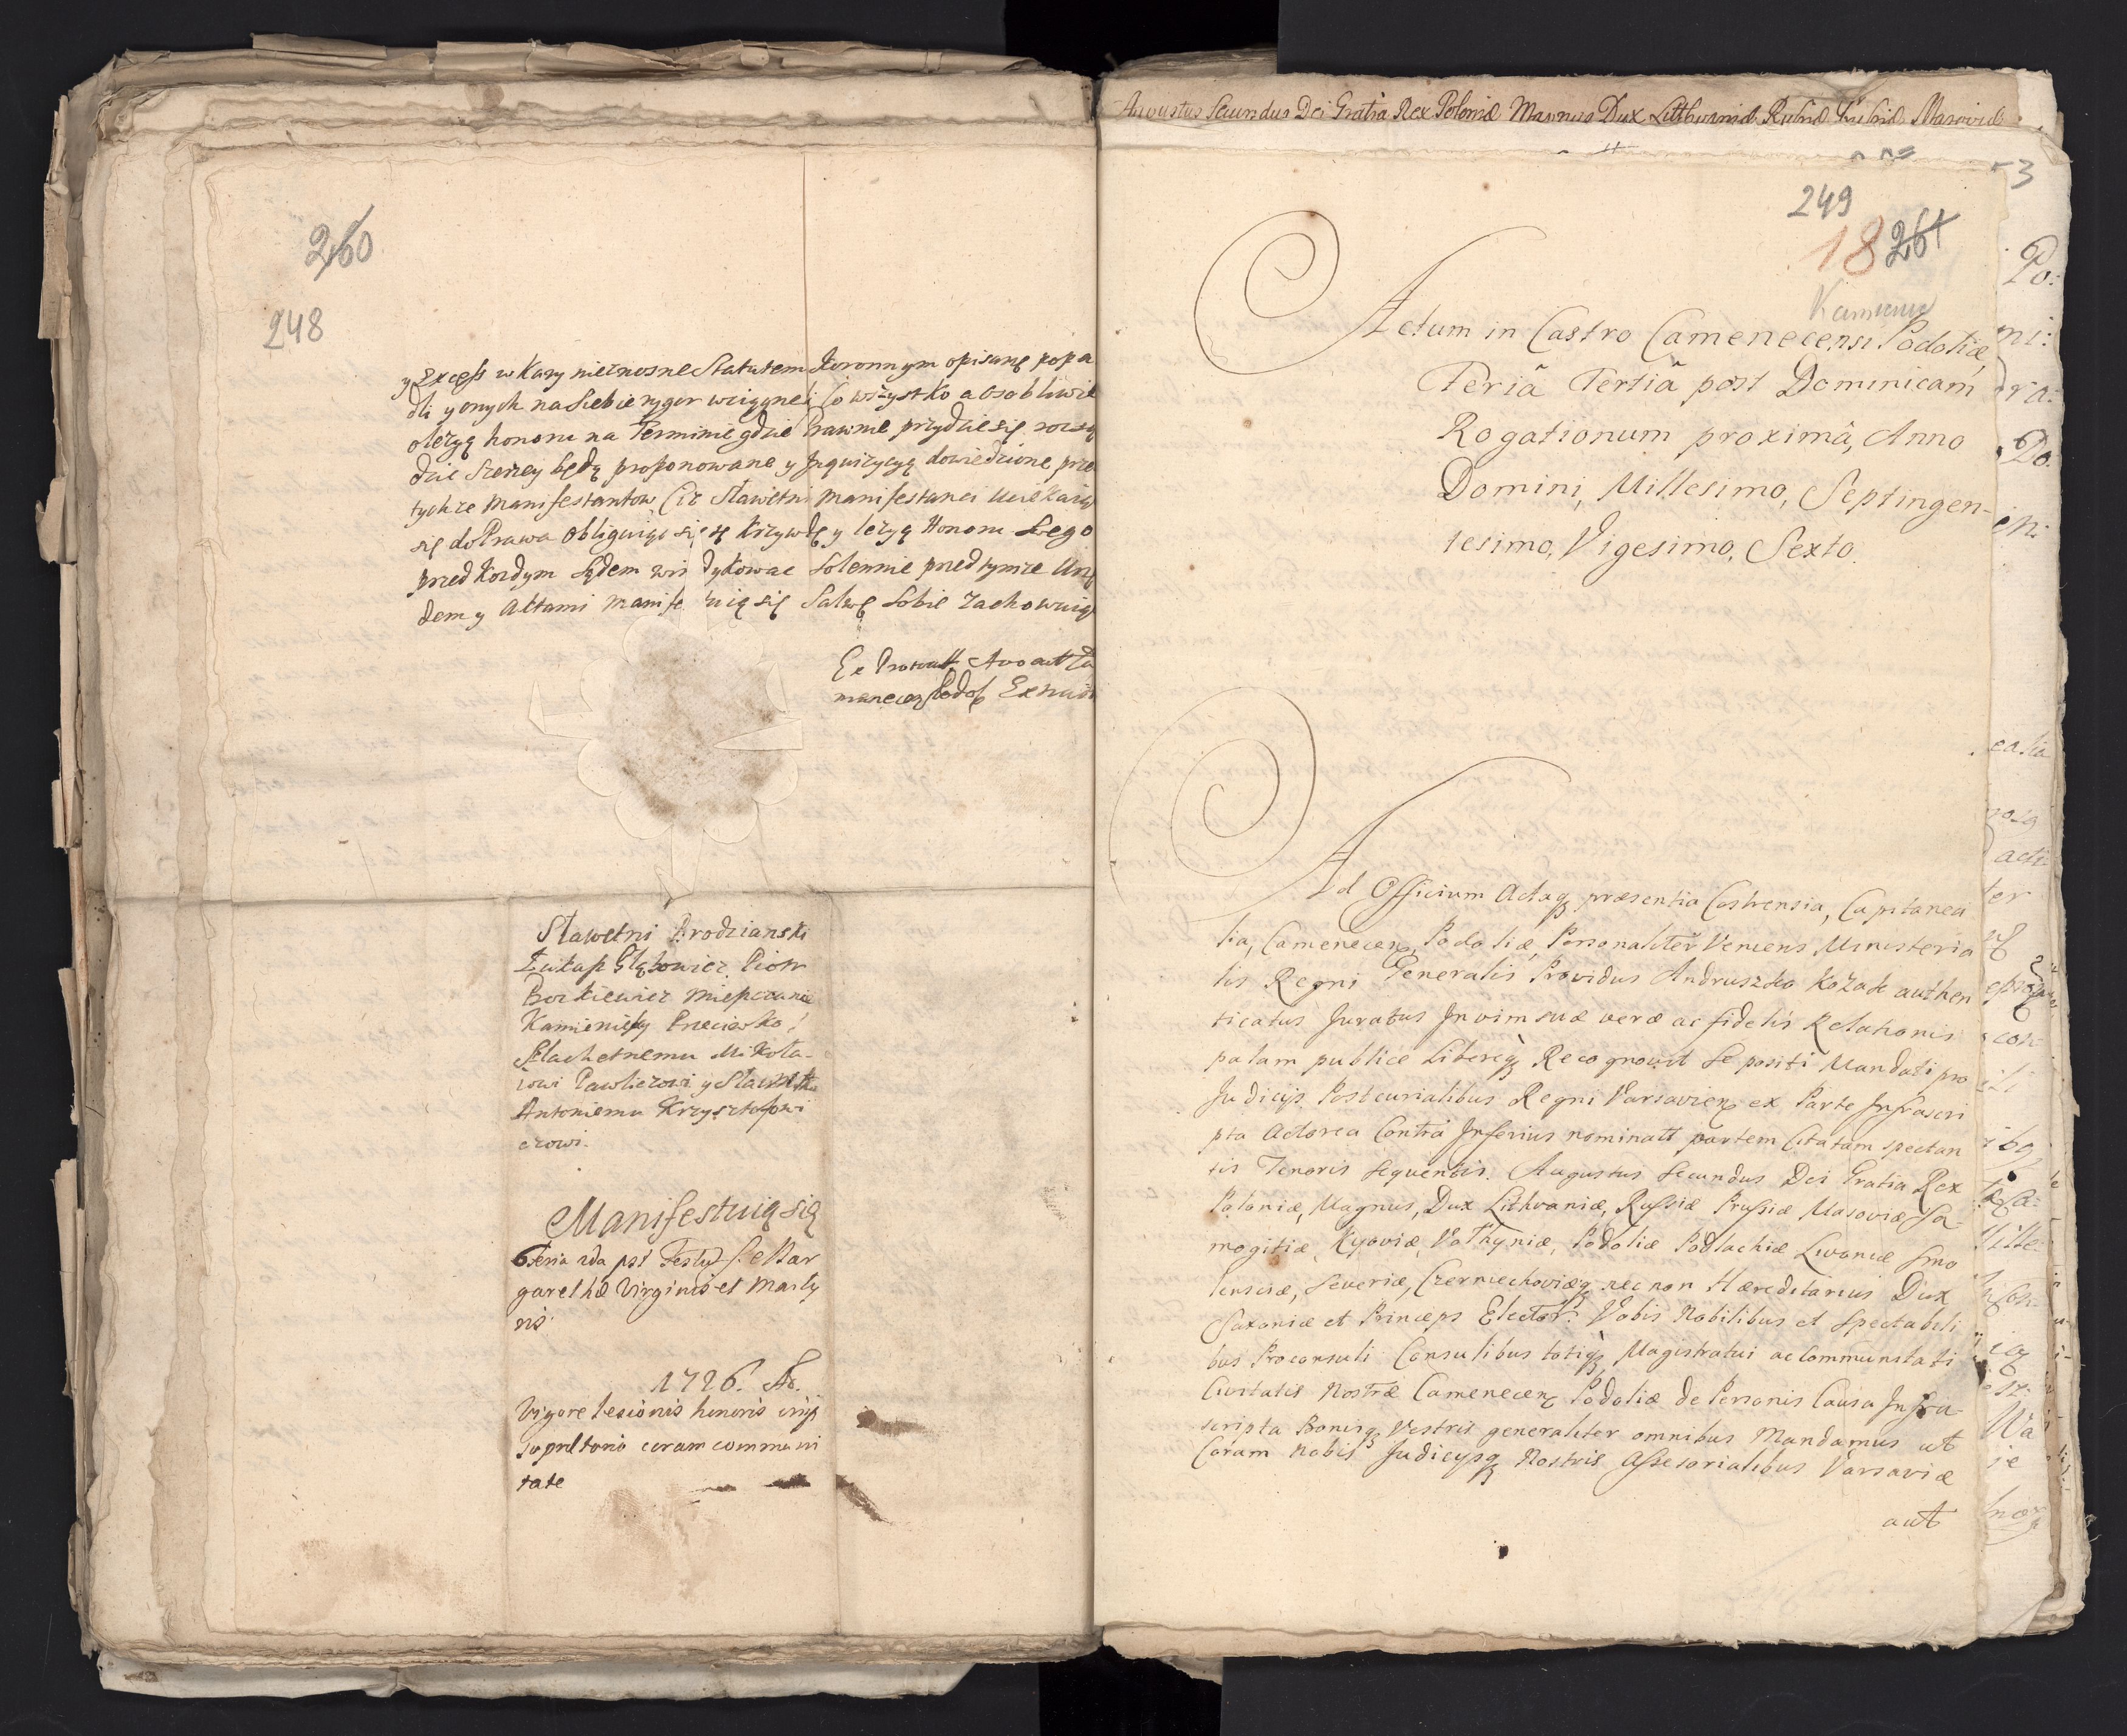 260
248
y Excess w Kary nieznosne Statutem Koronnym opisane popa
dli y onych na siebie rygor wciągneli Co wszystko a osobliwie
olezyą honoru na Terminie gdzie Prawnie przydzie się rozsą
dzic szerzey będą proponowane y Inquizycyą dowiedzione prze
tychze Manifestantow Ciz Sławetni Manifestanci uciekaiąc
się do Prawa obliguiąc się tę Krzywdę y lezyą Honoru swego
przed kozdym Sądem windykowac Solennie przed tymze Urzę
dem y Aktami manifestuią się Salwę sobie zachowuiąc
Ex Prothocoll
Sławetni Brodzianski
Łukasz Piotr
Mieszczanie
Kamienieccy Przeciwko
Szlachetnemu Mikoła-
iowi Pawliczowi y Sławetnemu
Antoniemu Krzysztofowi
czowi.
Manifestuią się
Feria 2da post Festum S. Mar
garethæ Virginis et Marty
ris
1726.
Vigore lesionis honoris
in prætorio coram communi
tate
Augustus Secundus Dei Gratia Rex Poloniæ Magnus Dux Litthuaniæ Russiæ Prussiæ Masoviæ
249
18 261
Actum in Castro Camenecensi Podoliæ
Feriâ Tertiâ post Dominicam
Rogationum proximâ, Anno
Domini, Millesimo, Septingen-
tesimo, Vigesimo, Sexto.
Ad Officium Actaq præsentia Castrensia, Capitanea
lia, Camenecen Podoliæ Personaliter Veniens Ministeria
lis Regni Generalis Providus Andruszko Kozak authen
ticatus Juratus In vim suæ veræ ac fidelis Relationis
palam publice Libereq Recognovit se positi Mandati pro
Judicijs Postcurialibus Regni Varsavien ex Parte Infrascri
pta Actorea Contra Inferius nominatt partem Citatam spectan
tis Tenoris sequentis. Augustus Secundus Dei Gratia Rex
Poloniæ, Magnus, Dux Lithvaniæ, Russiæ Prussiæ Masoviæ Sa-
mogitiæ Kyoviæ, Vołhyniæ, Podoliæ Podlachiæ Livoniæ Smo
lensciæ, Severiæ, Czerniechoviæq nec non Hæreditarius Dux
Saxoniæ et Princeps Elector. Vobis Nobilibus et Spectabili
bus Proconsuli Consulibus totiq Magistratui ac Communitati
Civitatis Nostræ Camenecen Podoliæ de Personis Causa Infra-
scripta Bonisq Vestris generaliter omnibus Mandamus ut
Coram nobis Judicijsq Nostris Assessorialibus Varsaviæ
aut